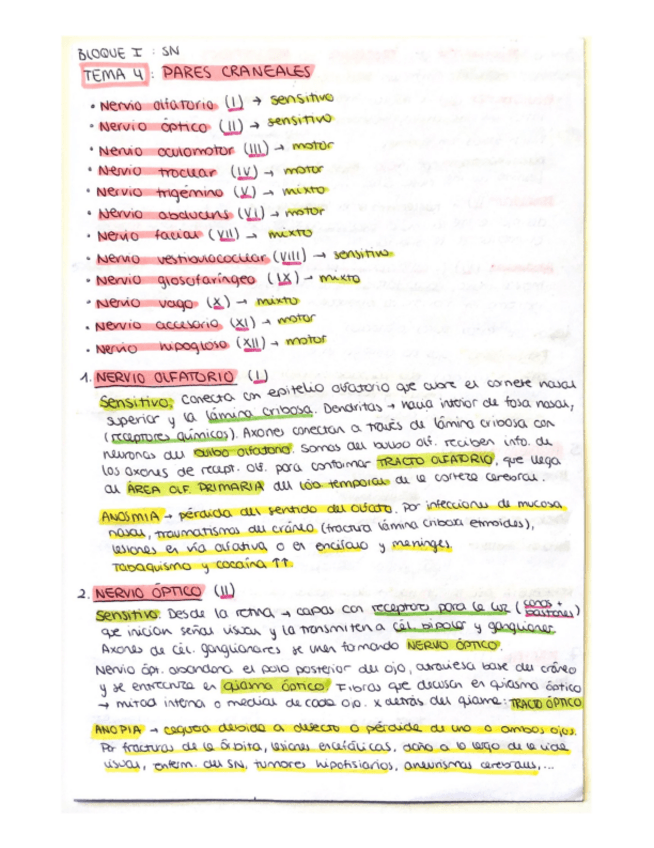 BLOQUE I : SN
TEMA 4 : PARES CRANEALES
· Nervio olfatorio (I) → sensitivo
· Nervio óptico (II) → sensitivo
· Nervio oculomotor (III) → motor
· Nervio troclear (IV) → motor
· Nervio trigémino (V) → mixto
· Nervio abducens (VI) → motor
· Nervio facial (VII) → mixto
· Nervio vestibulococlear (VIII) → sensitivo
· Nervio glosofaríngeo (IX) → mixto
· Nervio vago (X) → mixto
· Nervio accesorio (XI) → motor
· Nervio hipogloso (XII) → motor
1. NERVIO OLFATORIO (I)
Sensitivo. Conecta con epitelio olfatorio que cubre el cornete nasal
superior y la lámina cribosa. Dendritas → hacia interior de fosa nasal,
(receptores químicos). Axones conectan a través de lámina cribosa con
neuronas del bulbo olfatorio. Somas del bulbo olf. reciben info. de
los axones de recept. olf. para conformar TRACTO OLFATORIO, que llega
al ÁREA OLF. PRIMARIA del lób. temporal de la corteza cerebral.
ANOSMIA → pérdida del sentido del olfato. Por infecciones de mucosa
nasal, traumatismos del cráneo (fractura lámina cribosa etmoides),
lesiones en vía olfativa o en encéfalo y meninges.
Tabaquismo y cocaína ↑↑
2. NERVIO ÓPTICO (II)
Sensitivo. Desde la retina → capas con receptores para la luz (conos + bastones)
que inician señal visual y la transmiten a cél. bipolar y ganglionar.
Axones de cél. ganglionares se unen formando NERVIO ÓPTICO.
Nervio ópt. abandona el polo posterior del ojo, atraviesa base del cráneo
y se entrecruza en quiasma óptico. Fibras que decusan en quiasma óptico
→ mitad interna o medial de cada ojo. x detrás del quiasma: TRACTO ÓPTICO
ANOPIA → ceguera debida a defecto o pérdida de uno o ambos ojos.
Por fracturas de la órbita, lesiones encefálicas, daño a lo largo de la vida
visual, enferm. del SN, tumores hipofisiarios, aneurismas cerebrales,...